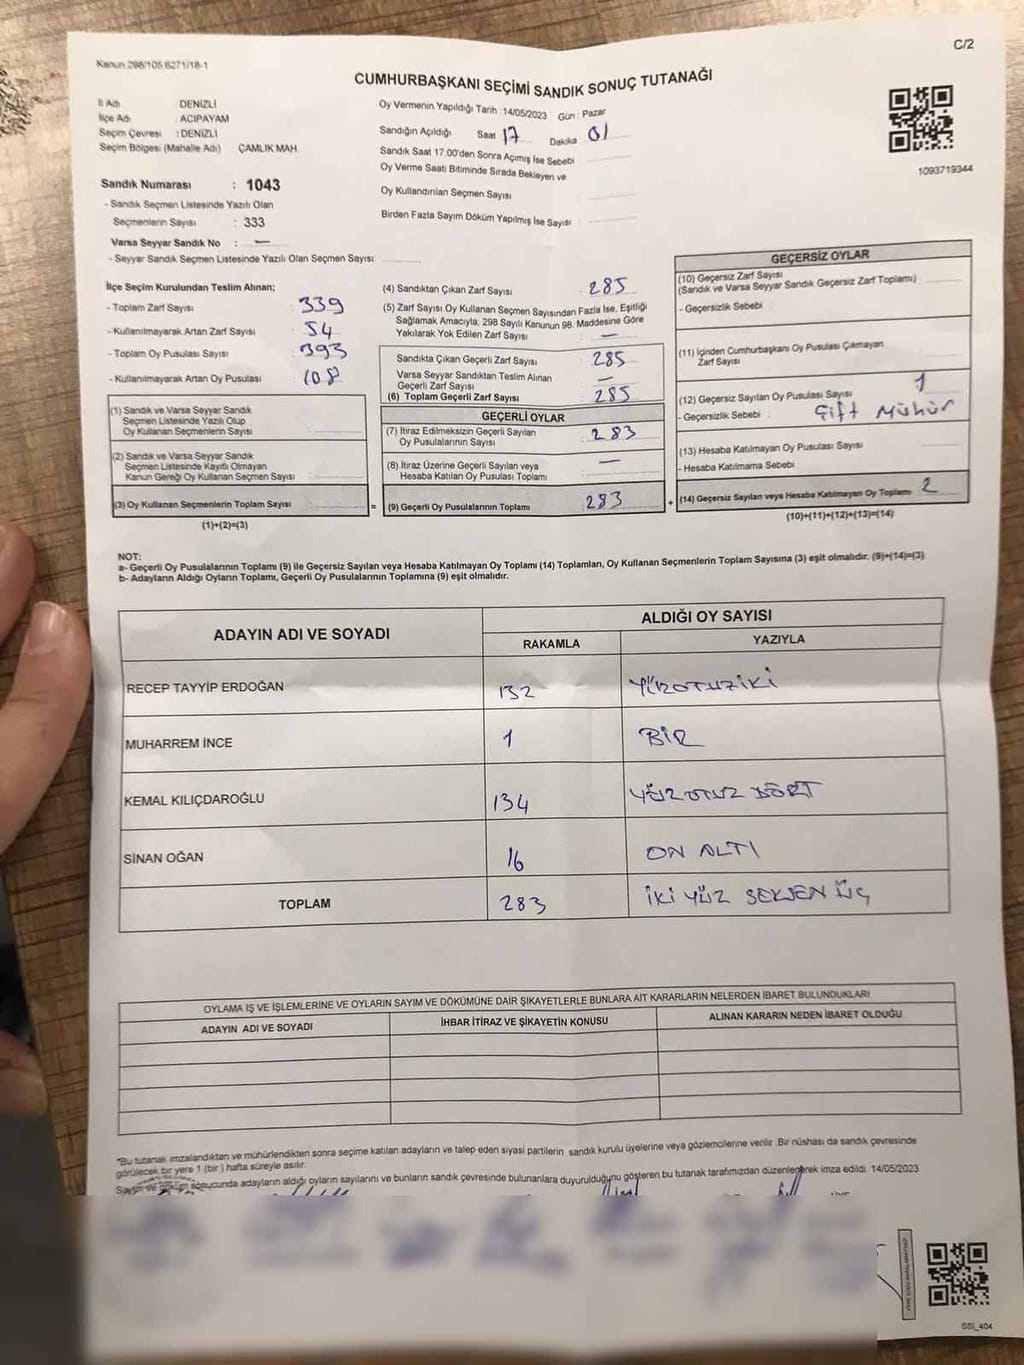 C/2
Kanun 298/105 6271/18-1
CUMHURBAŞKANI SEÇİMİ SANDIK SONUÇ TUTANAĞI
İl Adı DENİZLİ
İlçe Adı ACIPAYAM
Seçim Çevresi : DENİZLİ
Seçim Bölgesi (Mahalle Adı) ÇAMLIK MAH.
Sandık Numarası : 1043
- Sandık Seçmen Listesinde Yazılı Olan
Seçmenlerin Sayısı : 333
Varsa Seyyar Sandık No : —
- Seyyar Sandık Seçmen Listesinde Yazılı Olan Seçmen Sayısı:
Oy Vermenin Yapıldığı Tarih : 14/05/2023 Gün : Pazar
Sandığın Açıldığı Saat 17 Dakika 01
Sandık Saat 17:00'den Sonra Açımış İse Sebebi
Oy Verme Saati Bitiminde Sırada Bekleyen ve
Oy Kullandırılan Seçmen Sayısı
Birden Fazla Sayım Döküm Yapılmış İse Sayısı :
1093719344
İlçe Seçim Kurulundan Teslim Alınan;
- Toplam Zarf Sayısı : 339
- Kullanılmayarak Artan Zarf Sayısı : 54
- Toplam Oy Pusulası Sayısı : 393
- Kullanılmayarak Artan Oy Pusulası : 108
(1) Sandık ve Varsa Seyyar Sandık
Seçmen Listesinde Yazılı Olup
Oy Kullanan Seçmenlerin Sayısı
(2) Sandık ve Varsa Seyyar Sandık
Seçmen Listesinde Kayıtlı Olmayan
Kanun Gereği Oy Kullanan Seçmen Sayısı :
(3) Oy Kullanan Seçmenlerin Toplam Sayısı :
(1)+(2)=(3)
(4) Sandıktan Çıkan Zarf Sayısı : 285
(5) Zarf Sayısı Oy Kullanan Seçmen Sayısından Fazla İse, Eşitliği
Sağlamak Amacıyla, 298 Sayılı Kanunun 98. Maddesine Göre
Yakılarak Yok Edilen Zarf Sayısı : —
Sandıkta Çıkan Geçerli Zarf Sayısı : 285
Varsa Seyyar Sandıktan Teslim Alınan
Geçerli Zarf Sayısı : —
(6) Toplam Geçerli Zarf Sayısı : 285
GEÇERLİ OYLAR
(7) İtiraz Edilmeksizin Geçerli Sayılan
Oy Pusulalarının Sayısı : 283
(8) İtiraz Üzerine Geçerli Sayılan veya
Hesaba Katılan Oy Pusulası Toplamı : —
= (9) Geçerli Oy Pusulalarının Toplamı : 283
GEÇERSİZ OYLAR
(10) Geçersiz Zarf Sayısı
(Sandık ve Varsa Seyyar Sandık Geçersiz Zarf Toplamı) :
- Geçersizlik Sebebi :
(11) İçinden Cumhurbaşkanı Oy Pusulası Çıkmayan
Zarf Sayısı
(12) Geçersiz Sayılan Oy Pusulası Sayısı : 1
- Geçersizlik Sebebi : Çift Mühür
(13) Hesaba Katılmayan Oy Pusulası Sayısı :
- Hesaba Katılmama Sebebi :
+ (14) Geçersiz Sayılan veya Hesaba Katılmayan Oy Toplamı : 2
(10)+(11)+(12)+(13)=(14)
NOT:
a- Geçerli Oy Pusulalarının Toplamı (9) ile Geçersiz Sayılan veya Hesaba Katılmayan Oy Toplamı (14) Toplamları, Oy Kullanan Seçmenlerin Toplam Sayısına (3) eşit olmalıdır. (9)+(14)=(3)
b- Adayların Aldığı Oyların Toplamı, Geçerli Oy Pusulalarının Toplamına (9) eşit olmalıdır.
ADAYIN ADI VE SOYADI ALDIĞI OY SAYISI
RAKAMLA YAZIYLA
RECEP TAYYİP ERDOĞAN 132 YÜZOTUZİKİ
MUHARREM İNCE 1 BİR
KEMAL KILIÇDAROĞLU 134 YÜZ OTUZ DÖRT
SİNAN OĞAN 16 ON ALTI
TOPLAM 283 İKİ YÜZ SEKSEN ÜÇ
OYLAMA İŞ VE İŞLEMLERİNE VE OYLARIN SAYIM VE DÖKÜMÜNE DAİR ŞİKAYETLERLE BUNLARA AİT KARARLARIN NELERDEN İBARET BULUNDUKLARI
ADAYIN ADI VE SOYADI İHBAR İTİRAZ VE ŞİKAYETİN KONUSU ALINAN KARARIN NEDEN İBARET OLDUĞU
*Bu tutanak imzalandıktan ve mühürlendikten sonra seçime katılan adayların ve talep eden siyasi partilerin sandık kurulu üyelerine veya gözlemcilerine verilir .Bir nüshası da sandık çevresinde
görülecek bir yere 1 (bir) hafta süreyle asılır.
Sayım ve döküm sonucunda adayların aldığı oyların sayılarını ve bunların sandık çevresinde bulunanlara duyurulduğunu gösteren bu tutanak tarafımızdan düzenlenerek imza edildi. 14/05/2023
SSI_404